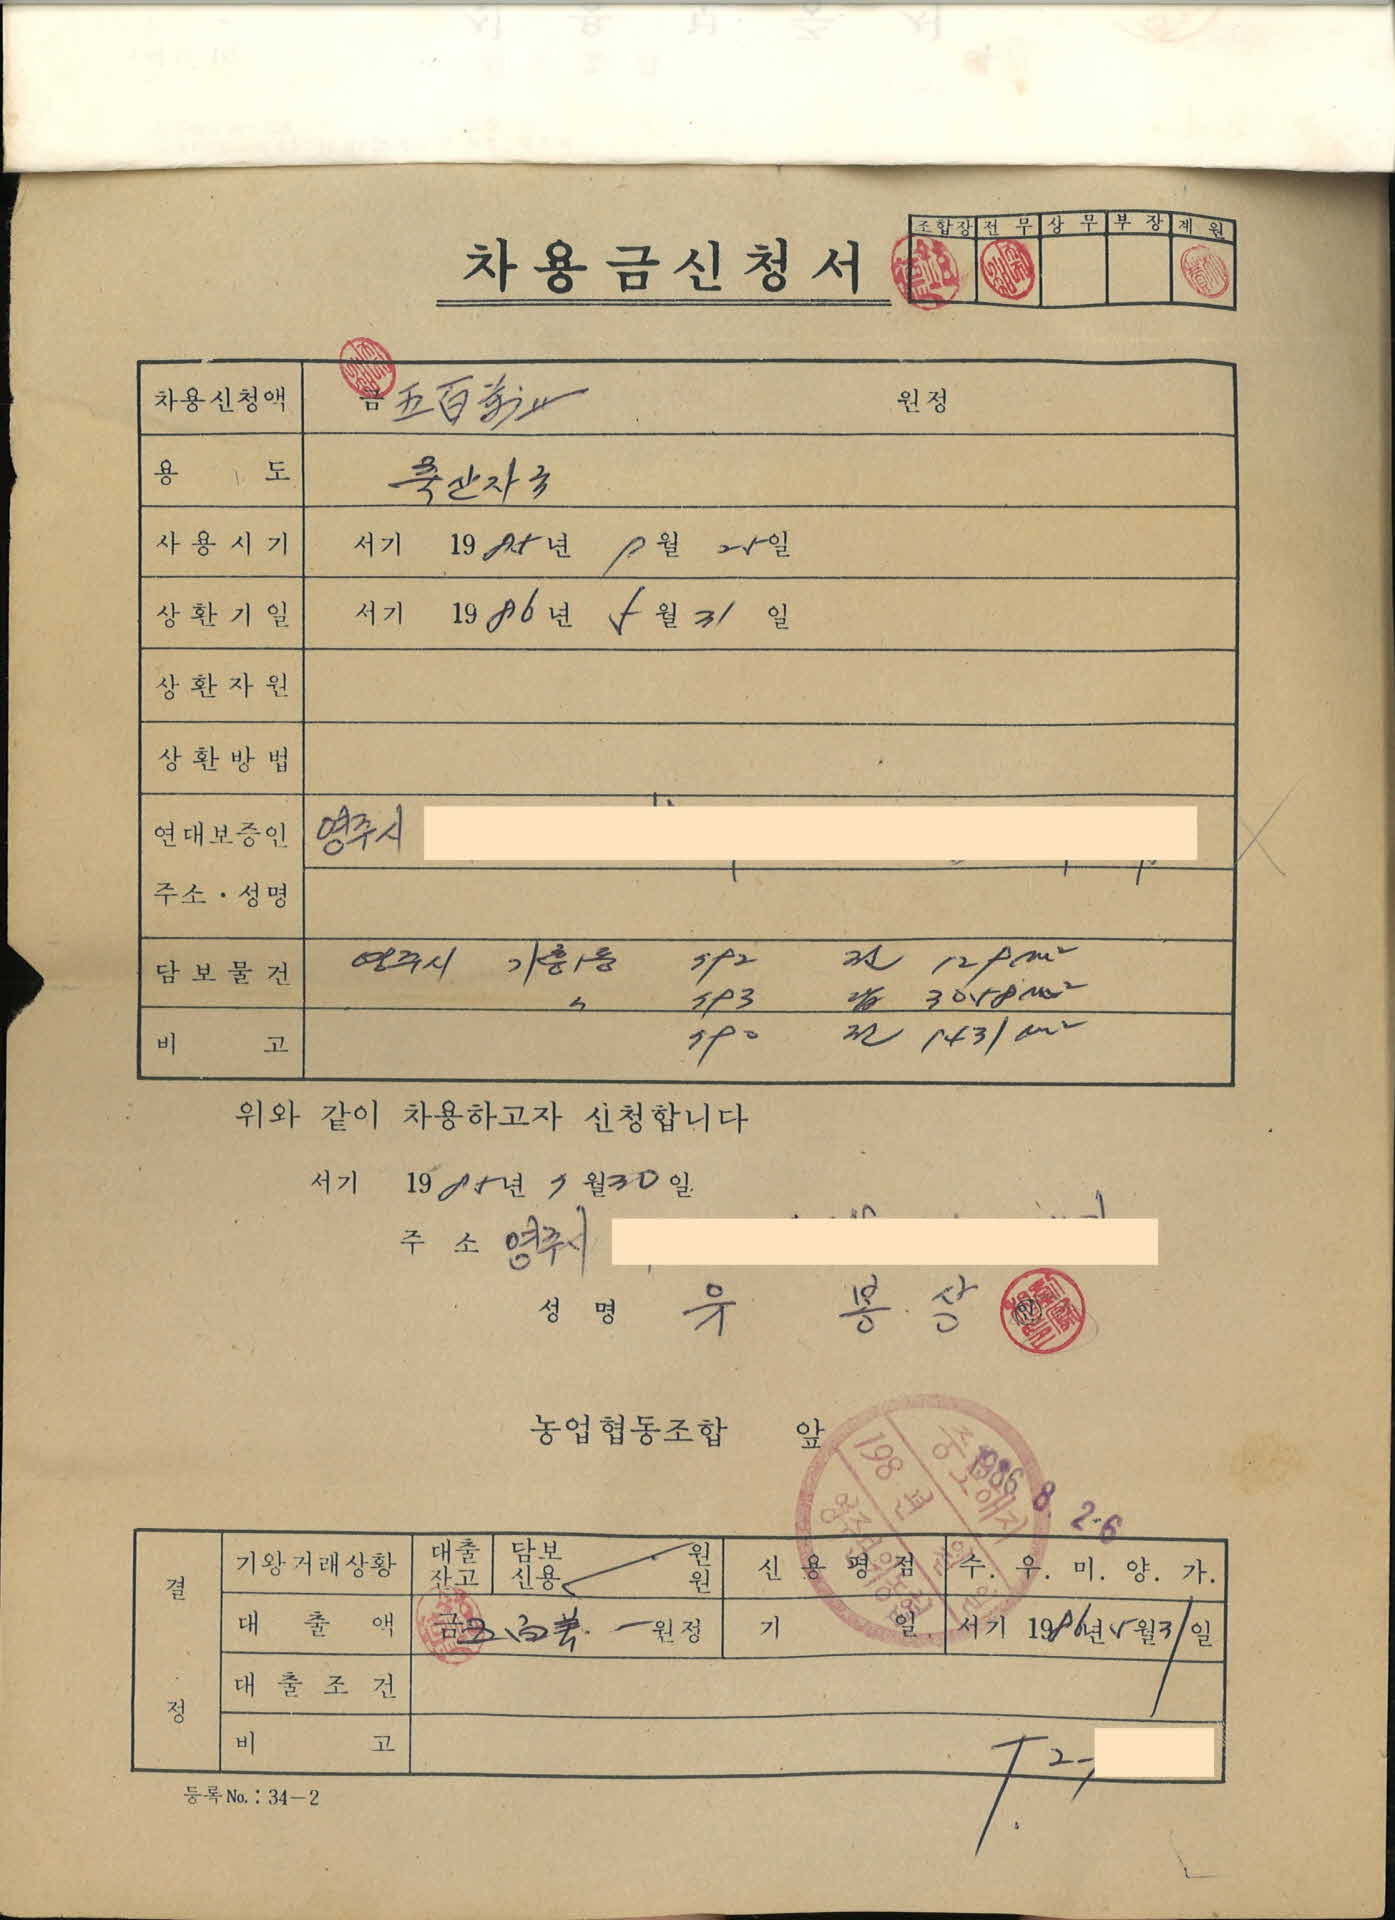 조합장 전무 상무 부장 계원
차용금신청서
차용신청액 금 五百萬 원정
용도 축산자금
사용시기 서기 1985년 월 25일
상환기일 서기 1986년 5월 31일
상환자원
상환방법
연대보증인 영주시
주소·성명
담보물건 영주시 가흥1동 답 3058m²
비고 전 1431m²
위와 같이 차용하고자 신청합니다
서기 1985년 5월 30일
주소 영주시
성명 우 봉 상 인
농업협동조합 앞
1986 8. 26
198 년 월 일
결정
기왕거래상황 대출잔고 담보 원 신용 원 신용평점 수. 우. 미. 양. 가.
대출액 금 五百萬 원정 기일 서기 1986년 5월 31일
대출조건
비고
등록 No.: 34-2